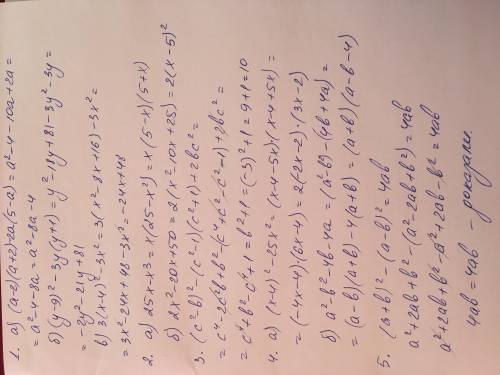 1. а) (a-2)(a+2)-2a(5-a) = a²-4-10a+2a =
= a²-4-8a = a²-8a-4
б) (y-9)²-3y(y+1) = y²-18y+81-3y²-3y =
= -2y²-21y+81
в) 3(x-4)²-3x² = 3(x²-8x+16)-3x² =
= 3x²-24x+48-3x² = -24x+48
2. а) 25x-x³ = x(25-x²) = x(5-x)(5+x)
б) 2x²-20x+50 = 2(x²-10x+25) = 2(x-5)²
3. (c²-b)²-(c²-1)(c²+1)+2bc² =
= c⁴-2c²b+b²-(c⁴+c²-c²-1)+2bc² =
= c⁴+b²-c⁴+1 = b²+1 = (-3)²+1 = 9+1 = 10
4. а) (x-4)²-25x² = (x-4-5x)(x-4+5x) =
= (-4x-4)(6x-4) = 2(-2x-2)·(3x-2)
б) a²-b²-4b-4a = (a²-b²)-(4b+4a) =
= (a-b)(a+b)-4(a+b) = (a+b)(a-b-4)
5. (a+b)²-(a-b)² = 4ab
a²+2ab+b²-(a²-2ab+b²) = 4ab
a²+2ab+b²-a²+2ab-b² = 4ab
4ab = 4ab - доказали.